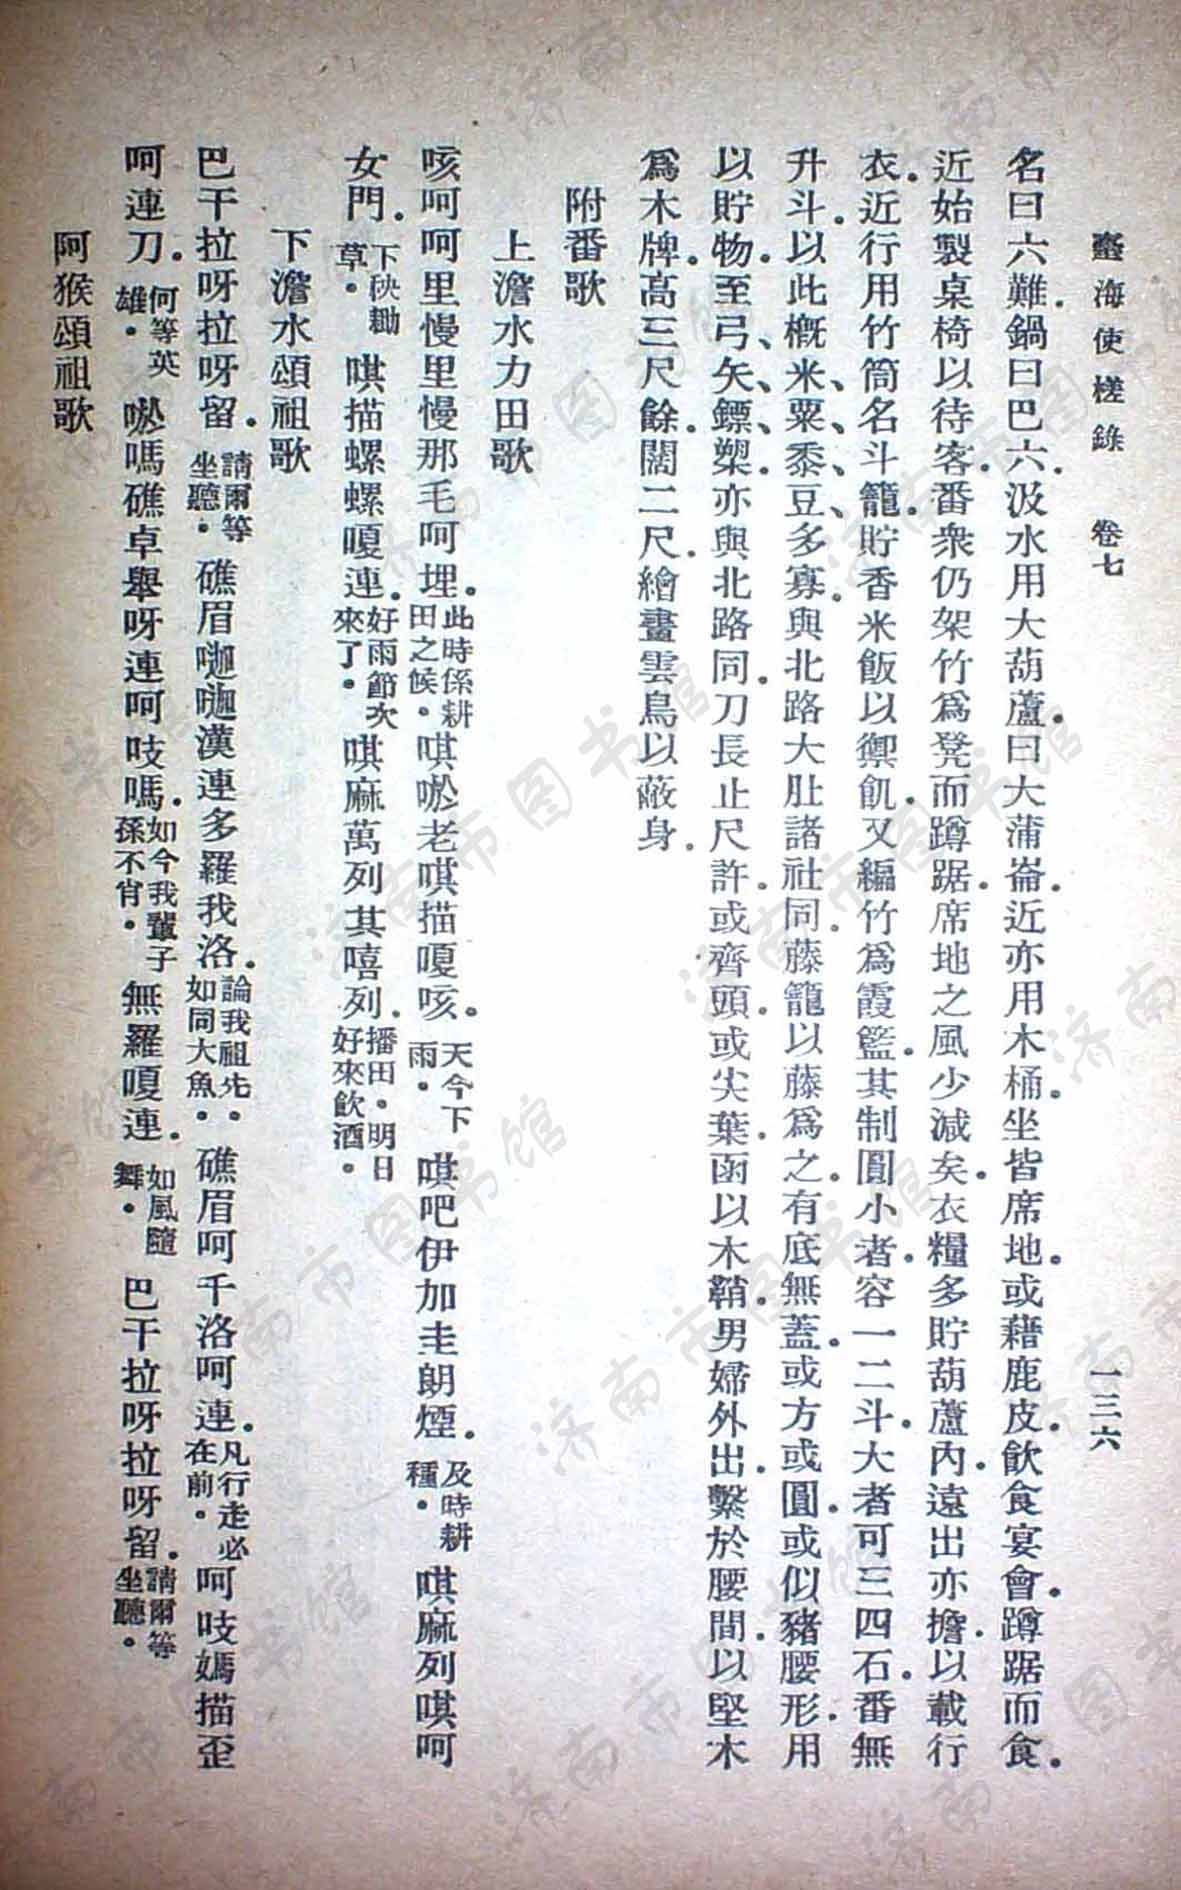 臺海使槎錄　卷七　一三六
名曰六難．鍋曰巴六．汲水用大葫蘆．曰大蒲崙．近亦用木桶．坐皆席地．或藉鹿皮．飲食宴會．蹲踞而食．
近始製桌椅以待客．番衆仍架竹爲凳而蹲踞．席地之風少減矣．衣糧多貯葫蘆內．遠出亦擔以載行
衣．近行用竹筒名斗籠．貯香米飯以禦飢．又編竹爲霞籃．其制圓．小者容一二斗．大者可三四石．番無
升斗．以此概米、粟、黍、豆、多寡．與北路大肚諸社同．藤籠以藤爲之．有底無蓋．或方或圓．或似豬腰形．用
以貯物．至弓、矢、鏢、槊．亦與北路同．刀長止尺許．或齊頭．或尖葉．函以木鞘．男婦外出．繫於腰間．以堅木
爲木牌．高三尺餘．闊二尺．繪畫雲鳥以蔽身．
附番歌
上澹水力田歌
咳呵呵里慢里慢那毛呵埋．此時係耕田之候．唭唹老唭描嗄咳．天今下雨．唭吧伊加圭朗煙．及時耕種．唭麻列唭呵
女門．下秧耡草．唭描螺螺嗄連．好雨節次來了．唭麻萬列其嘻列．播田．明日好來飲酒．
下澹水頌祖歌
巴干拉呀拉呀留．請爾等坐聽．礁眉呦呦漢連多羅我洛．論我祖先．如同大魚．礁眉呵千洛呵連．凡行走必在前．呵吱媽描歪
呵連刀．何等英雄．唹嗎礁卓舉呀連呵吱嗎．如今我輩子孫不肖．無羅嗄連．如風隨舞．巴干拉呀拉呀留．請爾等坐聽．
阿猴頌祖歌